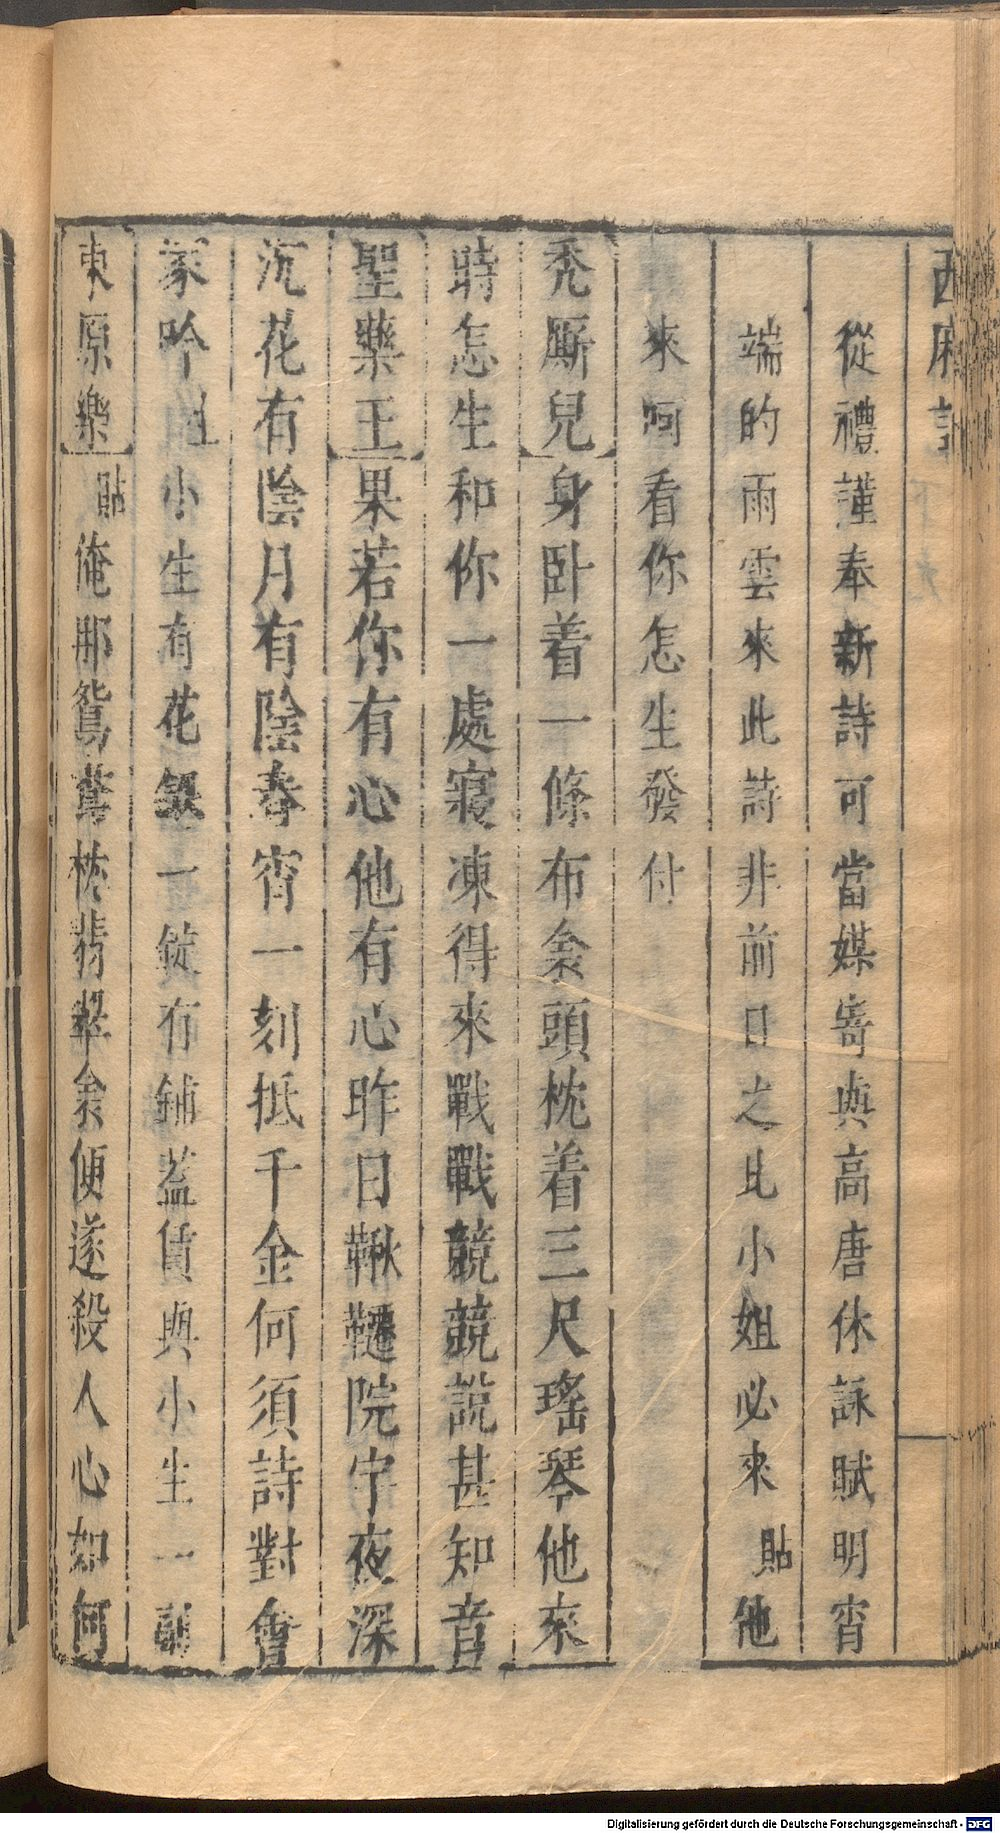 西廂記
從禮謹奉新詩可當媒寄與高唐休詠賦明宵
端的雨雲來此詩非前日之比小姐必來貼他
來呵看你怎生發付
禿厮兒身卧着一條布衾頭枕着三尺瑤琴他來
時怎生和你一處寢凍得來戰戰兢兢說甚知音
聖藥王果若你有心他有心昨日鞦韆院宇夜深
沉花有陰月有陰春宵一刻抵千金何須詩對會
家吟生小生有花銀一錠有鋪蓋賃與小生一副
東原樂貼俺那鴛鴦枕翡翠衾便遂殺人心如何
Digitalisierung gefördert durch die Deutsche Forschungsgemeinschaft - DFG